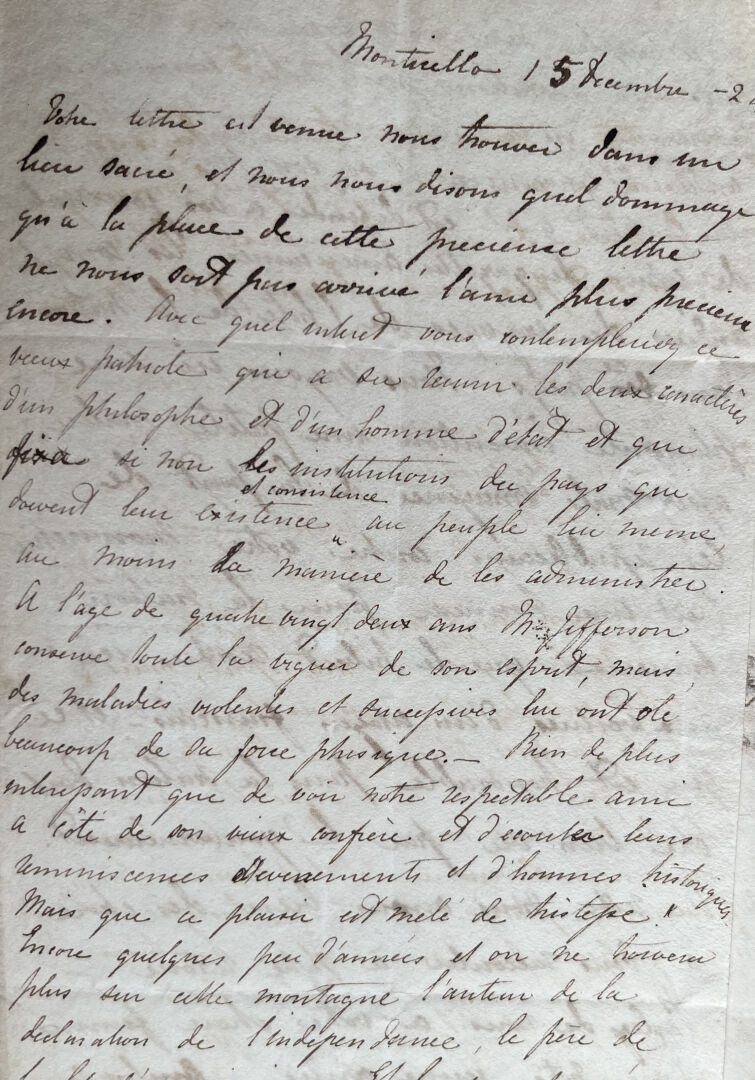 Monticello 15 Decembre -2
Votre lettre est venue nous trouver dans un
lieu sacré, et nous nous disons quel dommage
qu'à la place de cette precieuse lettre
ne nous soit pas arrivé l'ami plus precieux
encore. Avec quel interet vous contempleriez ce
vieux patriote qui a su reunir les deux caractères
d'un philosophe et d'un homme d'état et que
fixa si non les institutions du pays que
doivent leur existence et consistence au peuple lui meme
au moins la manière de les administrer.
A l'age de quatre vingt deux ans Mr Jefferson
conserve toute la viguer de son esprit, mais
des maladies violentes et successives lui ont oté
beaucoup de sa force phisique._ Rien de plus
interessant que de voir notre respectable ami
a côté de son vieux confrère et d'ecouter leurs
reminiscences d'evenements et d'hommes historiques.
Mais que ce plaisir est melé de tristesse!
Encore quelques peu d'années et on ne trouvera
plus sur cette montagne l'auteur de la
declaration de l'independance, le père de